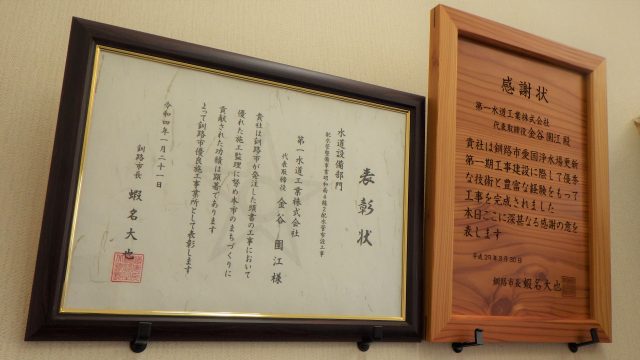 表彰状
水道設備部門
配水管整備事業昭和南4線2配水管布設工事
第一水道工業株式会社
代表取締役 金谷圍江様
貴社は釧路市が発注した頭書の工事において
優れた施工監理に努め本市のまちづくりに
貢献された功績は顕著であります
よって釧路市優良施工事業所として表彰します
令和四年一月二十一日
釧路市長 蝦名大也
感謝状
第一水道工業株式会社
代表取締役 金谷圍江殿
貴社は釧路市愛国浄水場更新
第一期工事建設に際して優秀
な技術と豊富な経験をもって
工事を完成されました
本日ここに深甚なる感謝の意を
表します
平成29年3月30日
釧路市長 蝦名大也